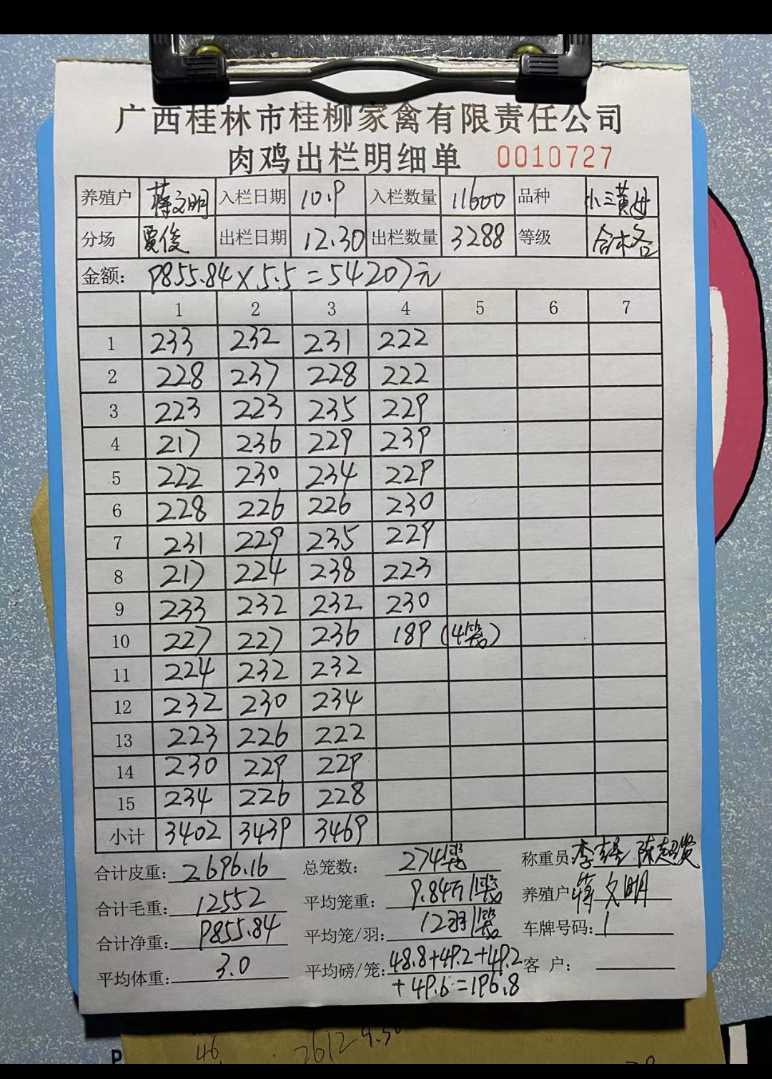 广西桂林市桂柳家禽有限责任公司
肉鸡出栏明细单 0010727
养殖户 蒋文明 入栏日期 10.9 入栏数量 11600 品种 小三黄母
分场 贾俊 出栏日期 12.30 出栏数量 3288 等级 合格
金额: 9855.84×5.5=54207元
1 2 3 4 5 6 7
1 233 232 231 222
2 228 237 228 222
3 223 223 235 229
4 217 236 229 239
5 222 230 234 229
6 228 226 226 230
7 231 229 235 229
8 217 224 238 223
9 233 232 232 230
10 227 227 236 189 (4笼)
11 224 232 232
12 232 230 234
13 223 226 222
14 230 229 229
15 234 226 228
小计 3402 3439 3469
合计皮重: 2696.16 总笼数: 274笼 称重员:
合计毛重: 12552 平均笼重: 9.84斤/笼 养殖户 蒋文明
合计净重: 9855.84 平均笼/羽: 12羽/笼 车牌号码:
平均体重: 3.0 平均磅/笼: 48.8+49.2+49.2 客户:
+49.6=196.8
46 2612